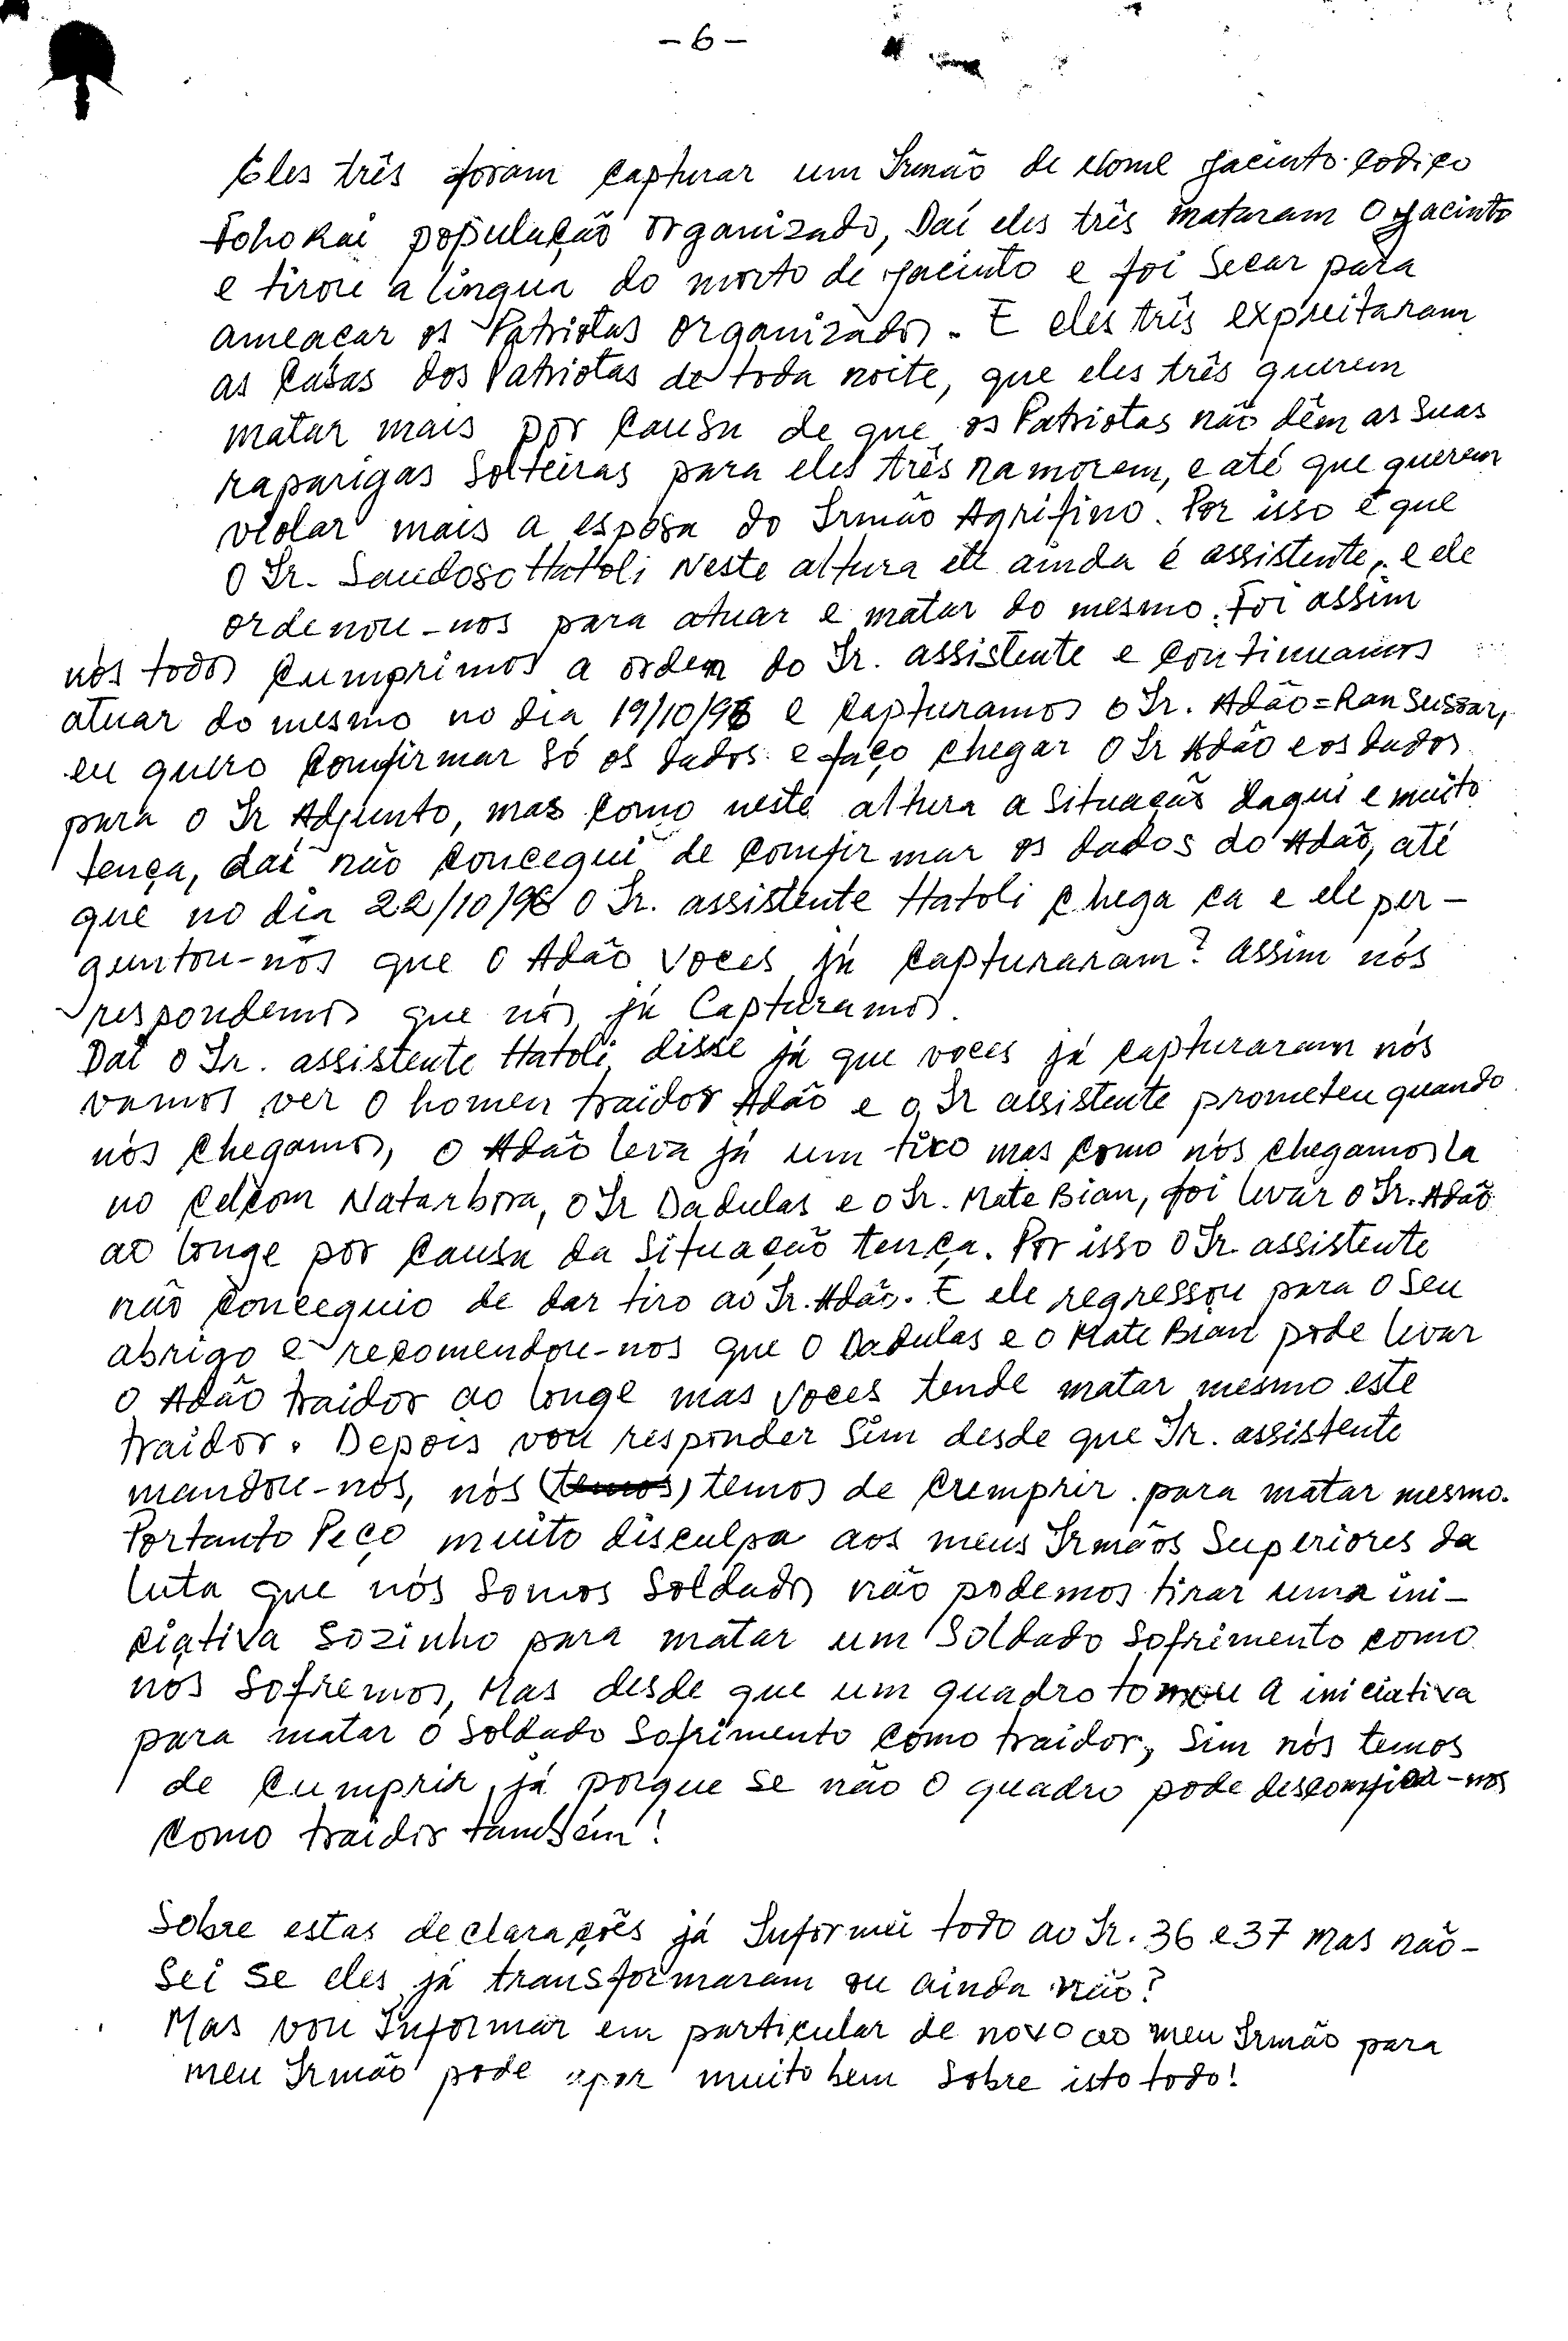 -6-
Eles três foram capturar um Irmão de Nome Jacinto codico
Fohorai população organizado, Daí eles três mataram o Jacinto
e tirou a lingua do morto de Jacinto e foi secar para
ameacar os Patriotas organizados. E eles três expreitaram
as casas dos Patriotas de toda noite, que eles três querem
matar mais por causa de que os Patriotas não dêm as suas
raparigas solteiras para eles três namorem, e até que querem
violar mais a esposa do Irmão Agrifino. Por isso é que
o Sr. Saudoso Hatoli Neste altura ele ainda é assistente, e ele
ordenou-nos para atuar e matar do mesmo. Foi assim
nós todos cumprimos a ordem do Sr. assistente e continuamos
atuar do mesmo no dia 19/10/98 e capturamos o Sr. Adão=Ran Sussar,
eu quero comfirmar só os dados e faço chegar o Sr Adão e os dados
para o Sr Adjunto, mas como neste altura a situação daqui e muito
tença, daí não concegui de comfirmar os dados do Adão, até
que no dia 22/10/98 o Sr. assistente Hatoli chega ca e ele per-
guntou-nos que o Adão voces já capturaram? assim nós
respondemos que nós já Capturamos.
Daí o Sr. assistente Hatoli disse já que voces já capturaram nós
vamos ver o homen traidor Adão e o Sr assistente prometeu quando
nós chegamos, o Adão leva já um tiro mas como nós chegamos la
no celcom Natarbora, o Sr Dadulas e o Sr. Mate Bian, foi levar o Sr. Adão
ao longe por causa da situação tença. Por isso o Sr. assistente
não conceguio de dar tiro ao Sr. Adão. E ele regressou para o seu
abrigo e recomendou-nos que o Dadulas e o Mate Bian pode levar
o Adão traidor ao longe mas voces tende matar mesmo este
traidor. Depois vou responder sim desde que Sr. assistente
mandou-nos, nós (temos) temos de cremprir para matar mesmo.
Portanto Peço muito disculpa aos meus Irmãos Superiores da
luta que nós somos soldados não podemos tirar uma ini-
ciativa sozinho para matar um soldado sofrimento como
nós sofremos, Mas desde que um quadro tomou a iniciativa
para matar o soldado sofrimento como traidor, sim nós temos
de cumprir já porque se não o quadro pode descomfiar-nos
como traidor também!
Sobre estas declarações já Informei todo ao Sr. 36 e 37 mas não-
sei se eles já transformaram ou ainda não?
Mas vou Informar em particular de novo ao meu Irmão para
meu Irmão pode muito bem sobre isto todo!